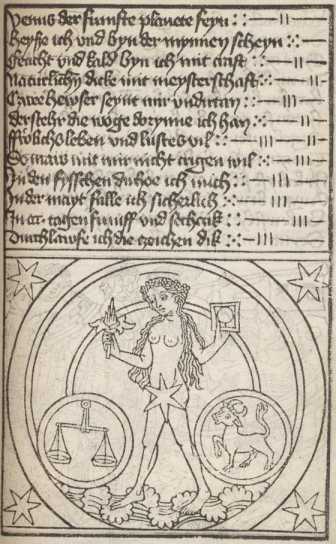 Venus der funfte planete feyn
heyſſe ich vnd byn der mynnen ſcheyn
feucht vnd kald byn ich mit craft
Naturlichn dicke mit meyſterſchaft
Czwe hewſer ſeynt mir vndirtan
der ſtehr die woge dorynne ich han
ffrolichs leben vnd luſtes vil
So mars mit mir nicht crigen wil
In den fyſſchen
In der mayt falle ich ſicherlich
tagen funff vnd ſechczik
Durchlawfe ich die czeichen dik